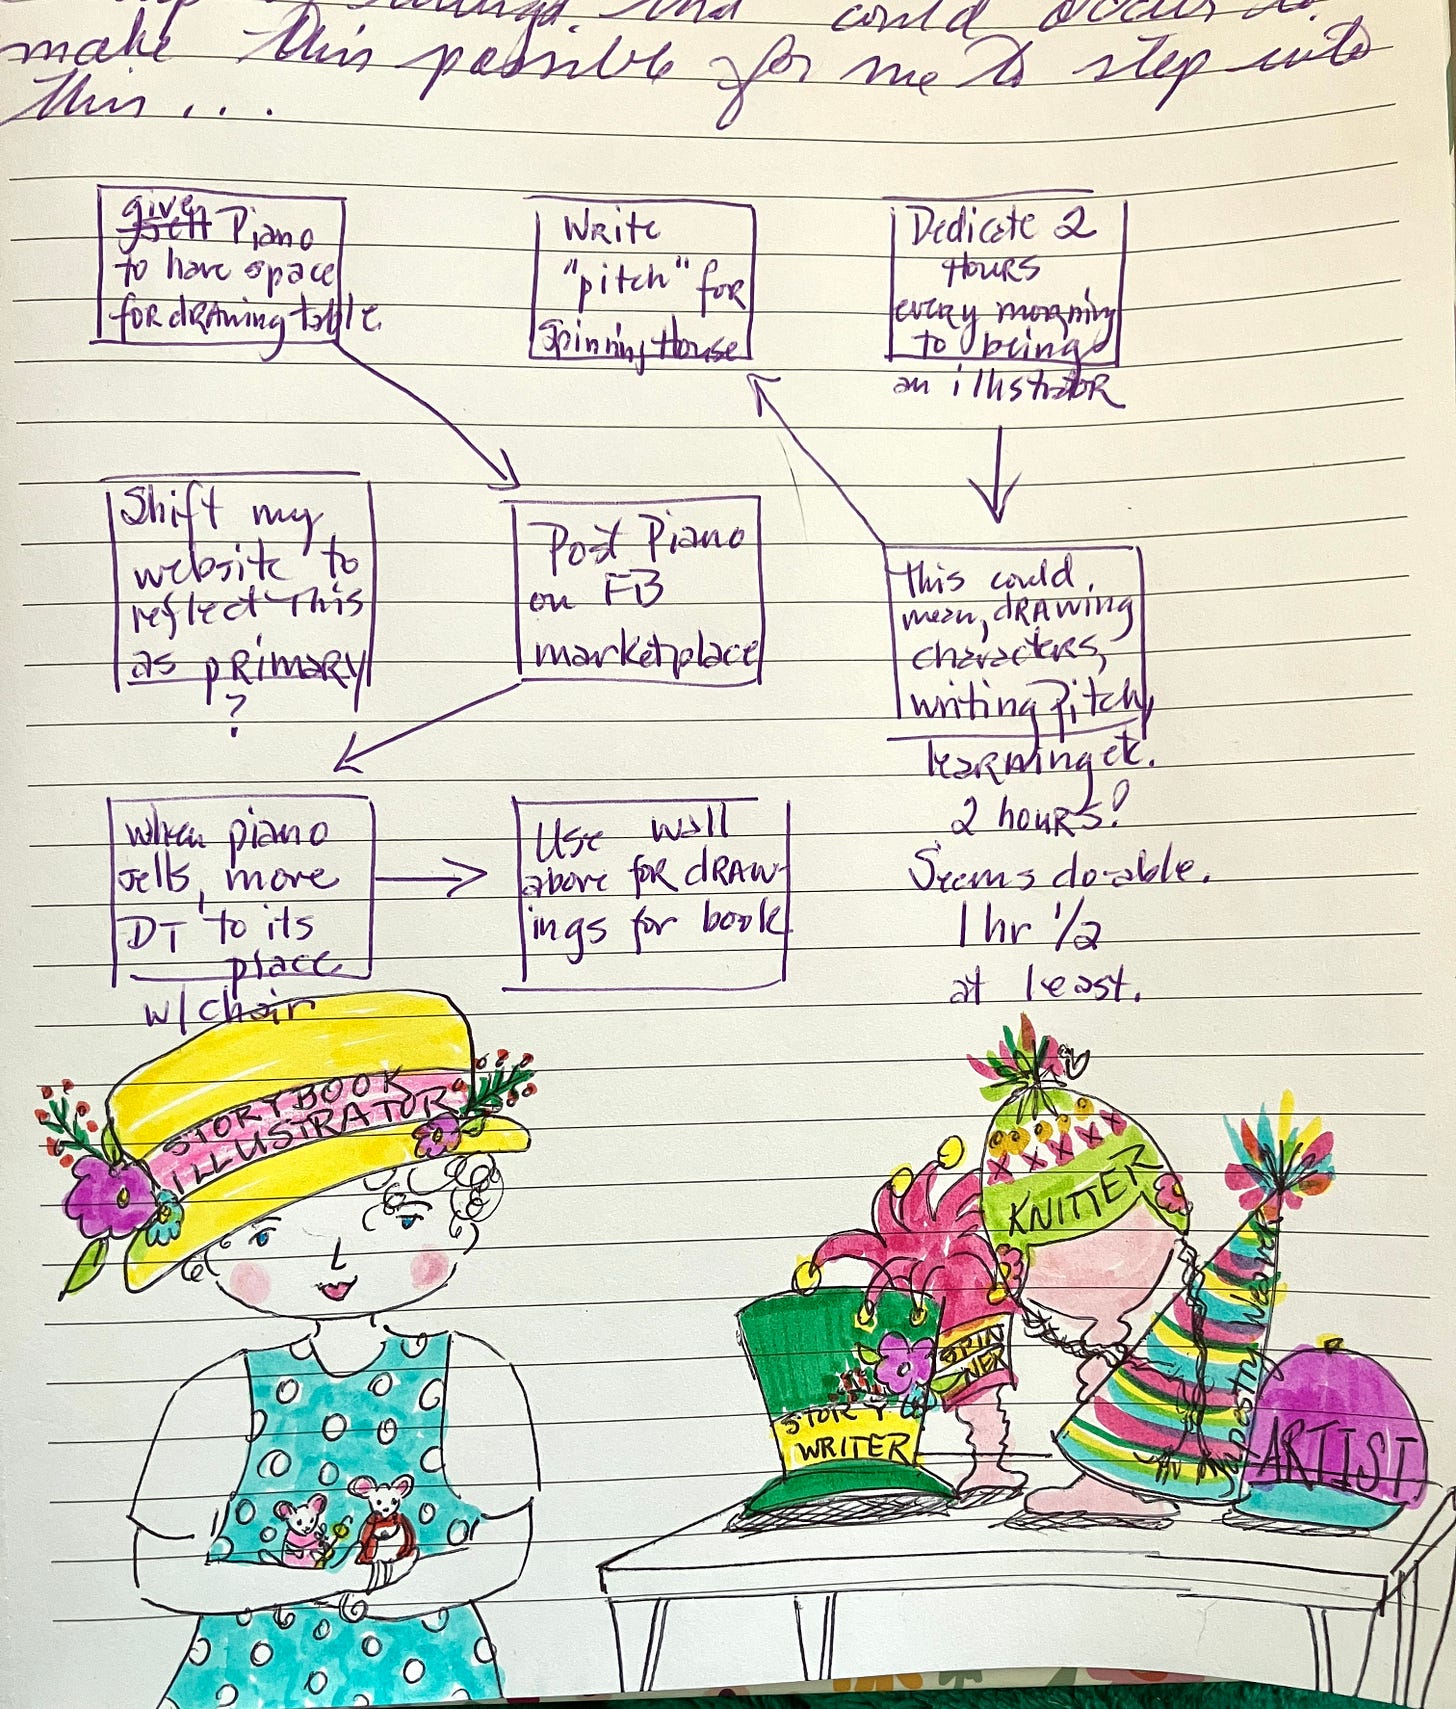 could occur to
make this possible for me to step into
this...
give
sell Piano
to have space
for drawing table
Write
"pitch" for
Spinning House
Dedicate 2
Hours
every morning
to being
an illustrator
Shift my
website to
reflect this
as primary
?
Post Piano
on FB
marketplace
this could
mean, drawing
characters,
writing Pitch,
learning etc.
2 hours!
Seems do-able.
1 hr 1/2
at least.
when piano
sells, more
DT to its
place
w/chair
Use wall
above for draw-
ings for book
STORYBOOK
ILLUSTRATOR
KNITTER
SPIN
NER
STORY
WRITER
Tapestry Weaver
ARTIST